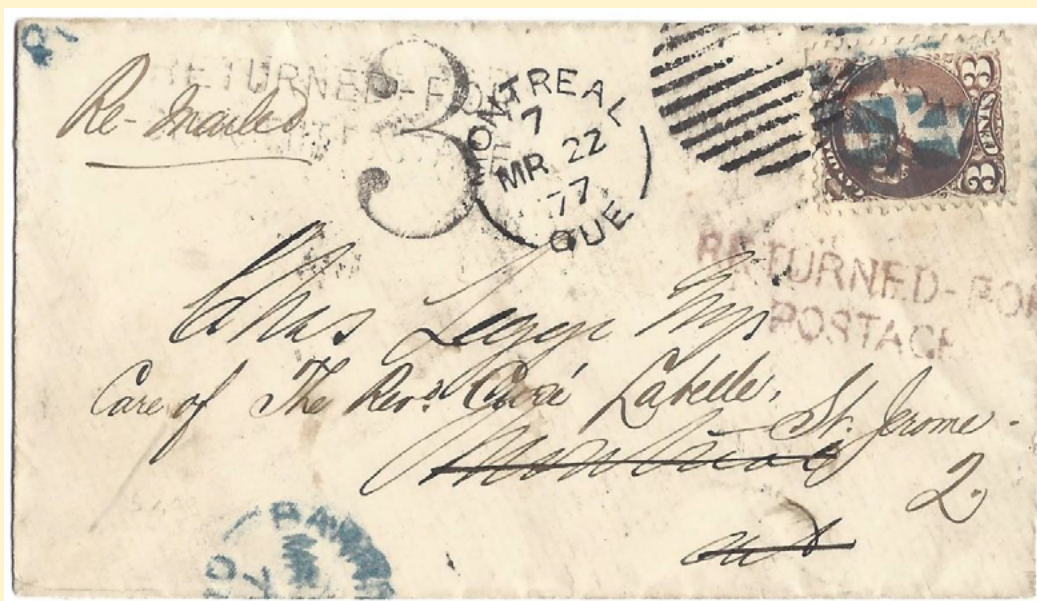 RETURNED-FOR
Re-mailed
3
MONTREAL
7
MR 22
77
QUE
3 CENTS 3
RETURNED-FOR
POSTAGE
Chas Legge
Care of The Revd. Curé Labelle,
St. Jerome.
Montreal
2